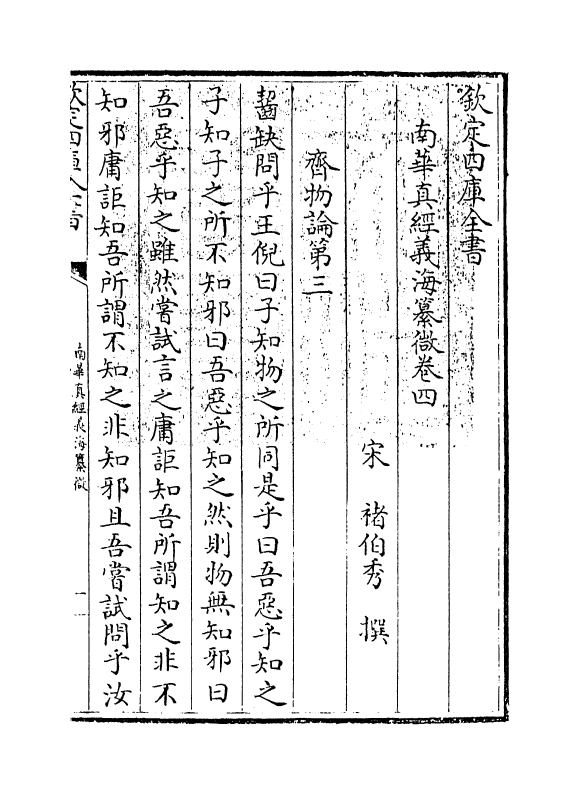 欽定四庫全書
南華真經義海纂微卷四
宋 褚伯秀 撰
齊物論第三
齧缺問乎王倪曰子知物之所同是乎曰吾惡乎知之
子知子之所不知邪曰吾惡乎知之然則物無知邪曰
吾惡乎知之雖然嘗試言之庸詎知吾所謂知之非不
知邪庸詎知吾所謂不知之非知邪且吾嘗試問乎汝
欽定四庫全書
南華真經義海纂微
一